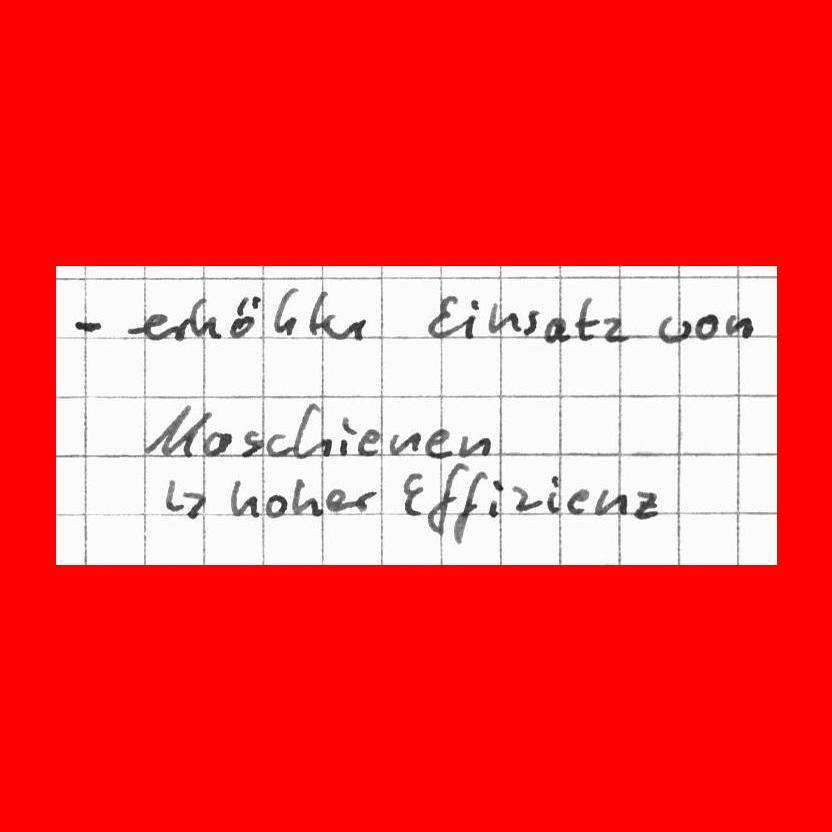 - erhöhter Einsatz von
Maschienen
↳ hoher Effizienz